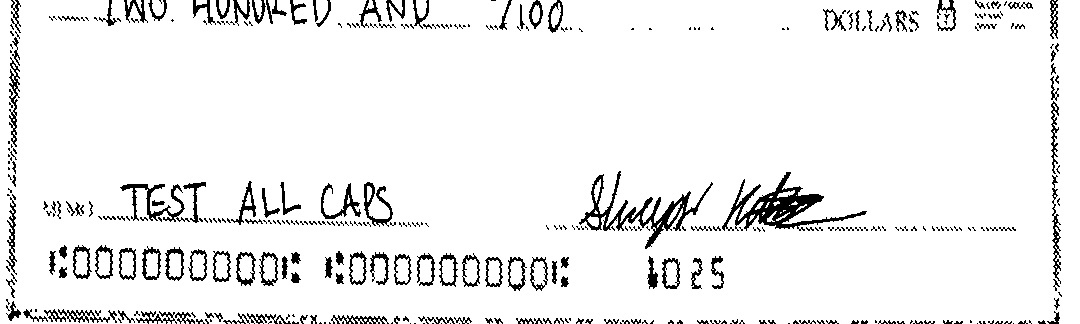 TWO HUNDRED AND /100 DOLLARS
MEMO TEST ALL CAPS
⑆000000000⑆ ⑆000000000⑆ 1025